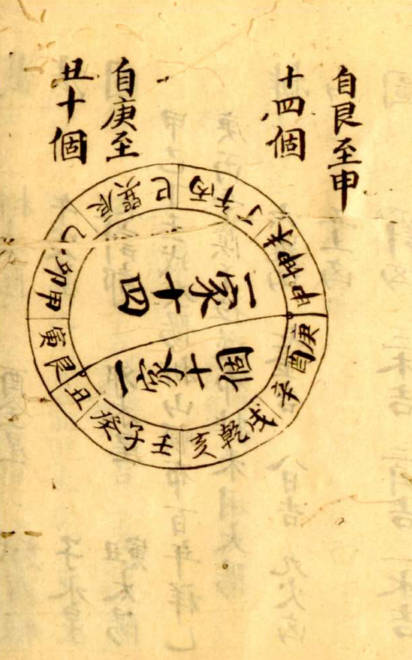 自艮至申
十四個
自庚至
丑十個
壬子癸丑艮寅甲卯乙辰巽巳丙午丁未坤申庚酉辛戌乾亥
一家十四
一家十個